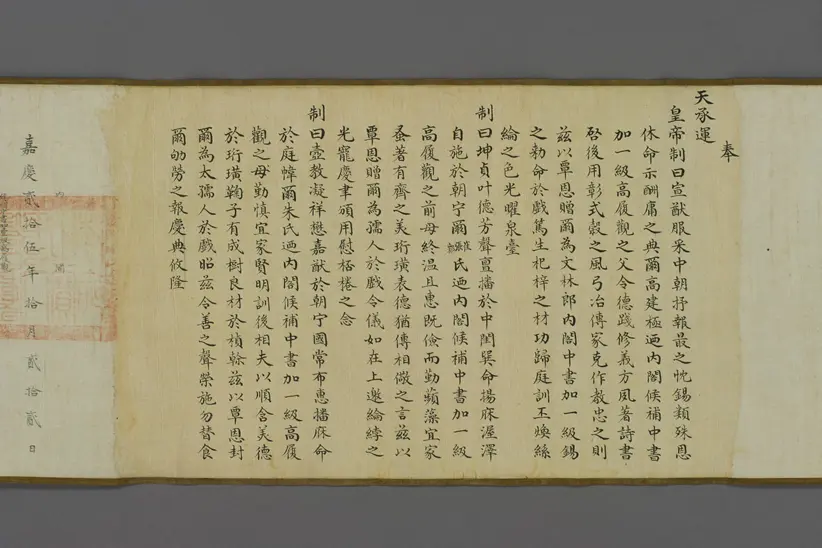 奉
天承運
皇帝制曰宣猷服采中朝抒報最之忱錫類殊恩
休命示酬庸之典爾高建極迺內閣候補中書
加一級高履觀之父令德踐修義方風著詩書
啓後用彰式穀之風弓冶傳家克作教忠之則
茲以覃恩贈爾為文林郎內閣中書加一級錫
之勑命於戲篤生杞梓之材功歸庭訓丕煥絲
綸之色光曜泉臺
制曰坤貞叶德芳聲亶播於中閨巽命揚庥渥澤
自施於朝宁爾氏迺內閣候補中書加一級
高履觀之前母終溫且惠既儉而勤蘋藻宜家
蚤著有齊之美珩璜表德猶傳相儆之言茲以
覃恩贈爾為孺人於戲令儀如在上邀綸綍之
光寵慶聿頒用慰桮棬之念
制曰壼教凝祥懋嘉猷於朝宁國常布惠播庥命
於庭幃爾朱氏迺內閣候補中書加一級高履
觀之母勤慎宜家賢明訓後相夫以順含美德
於珩璜鞠子有成樹良材於楨榦茲以覃恩封
爾為太孺人於戲昭茲令善之聲榮施勿替食
爾劬勞之報慶典攸隆
嘉慶貳拾伍年拾月貳拾貳日